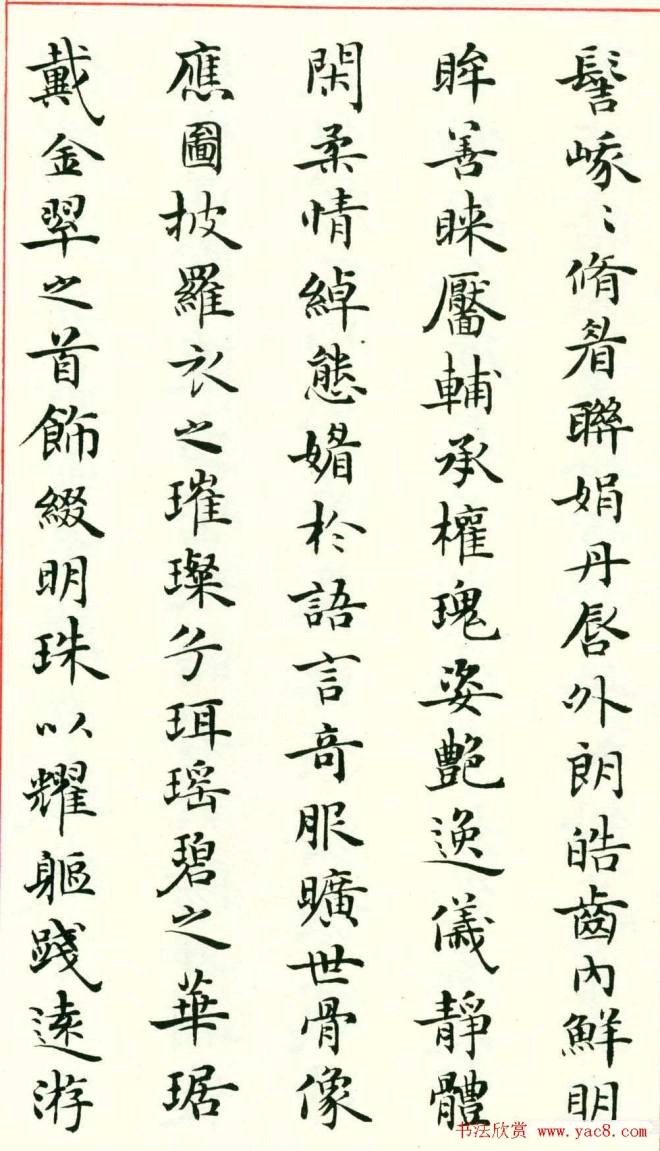 髻峩〻脩眉聯娟丹脣外朗皓齒內鮮明
眸善睞靨輔承權瑰姿艷逸儀靜體
閑柔情綽態媚於語言奇服曠世骨像
應圖披羅衣之璀璨兮珥瑶碧之華琚
戴金翠之首飾綴明珠以耀軀踐遠游
书法欣赏 www.yac8.com